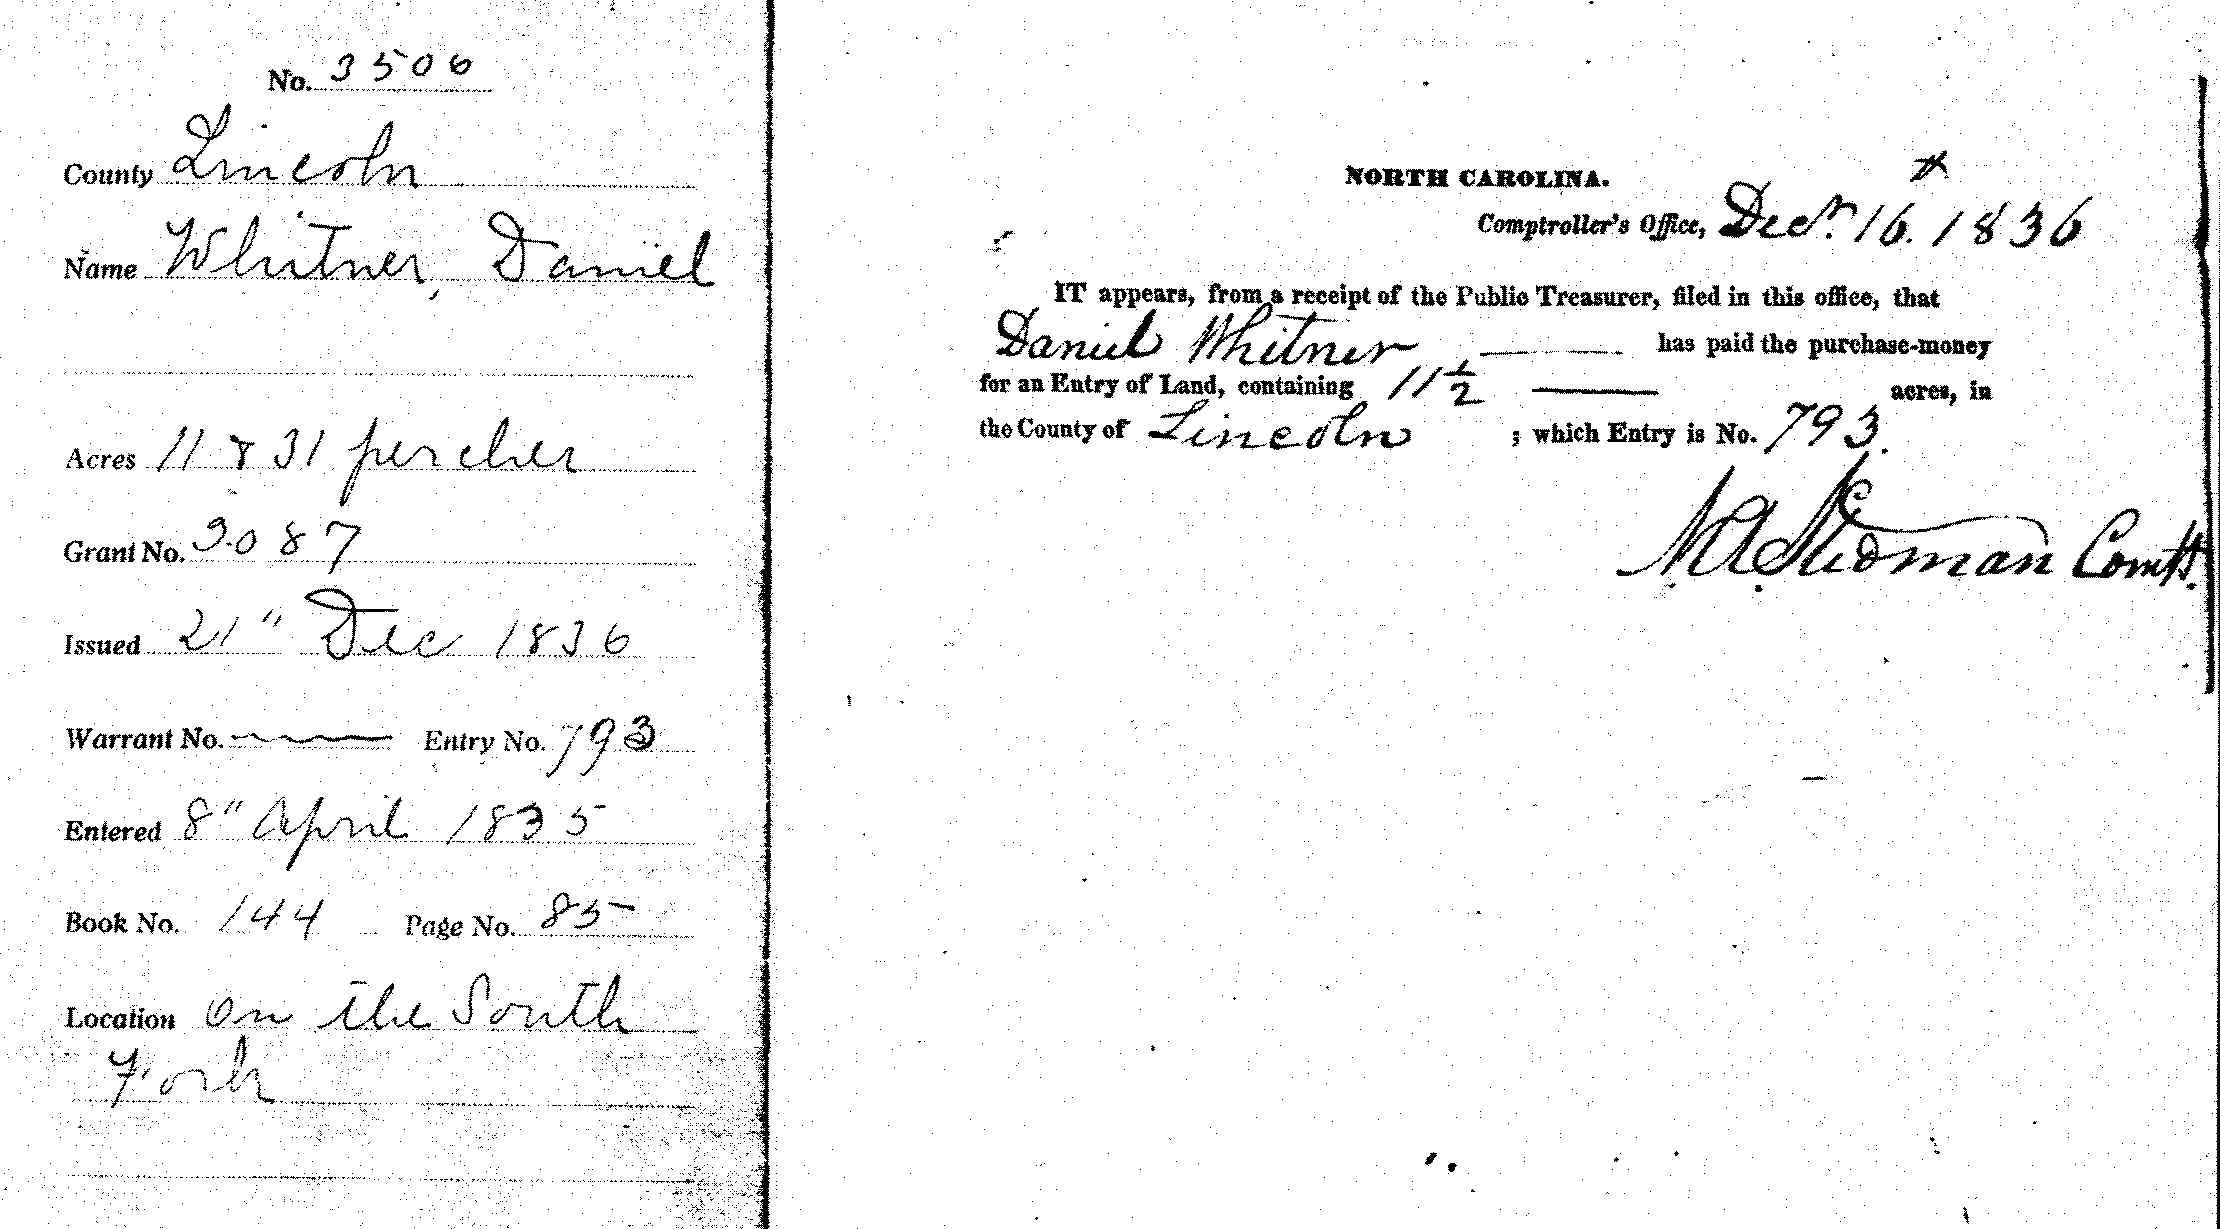 No. 3506
County Lincoln
Name Whitner, Daniel
Acres 11 & 31 perches
Grant No. 3087
Issued 21" Dec 1836
Warrant No. Entry No. 793
Entered 8" April 1835
Book No. 144 Page No. 85
Location On the South
Fork
NORTH CAROLINA.
Comptroller's Office, Decr. 16. 1836
IT appears, from a receipt of the Public Treasurer, filed in this office, that
Daniel Whitner has paid the purchase-money
for an Entry of Land, containing 11 1/2 acres, in
the County of Lincoln ; which Entry is No. 793.
N A Stedman Comptr.